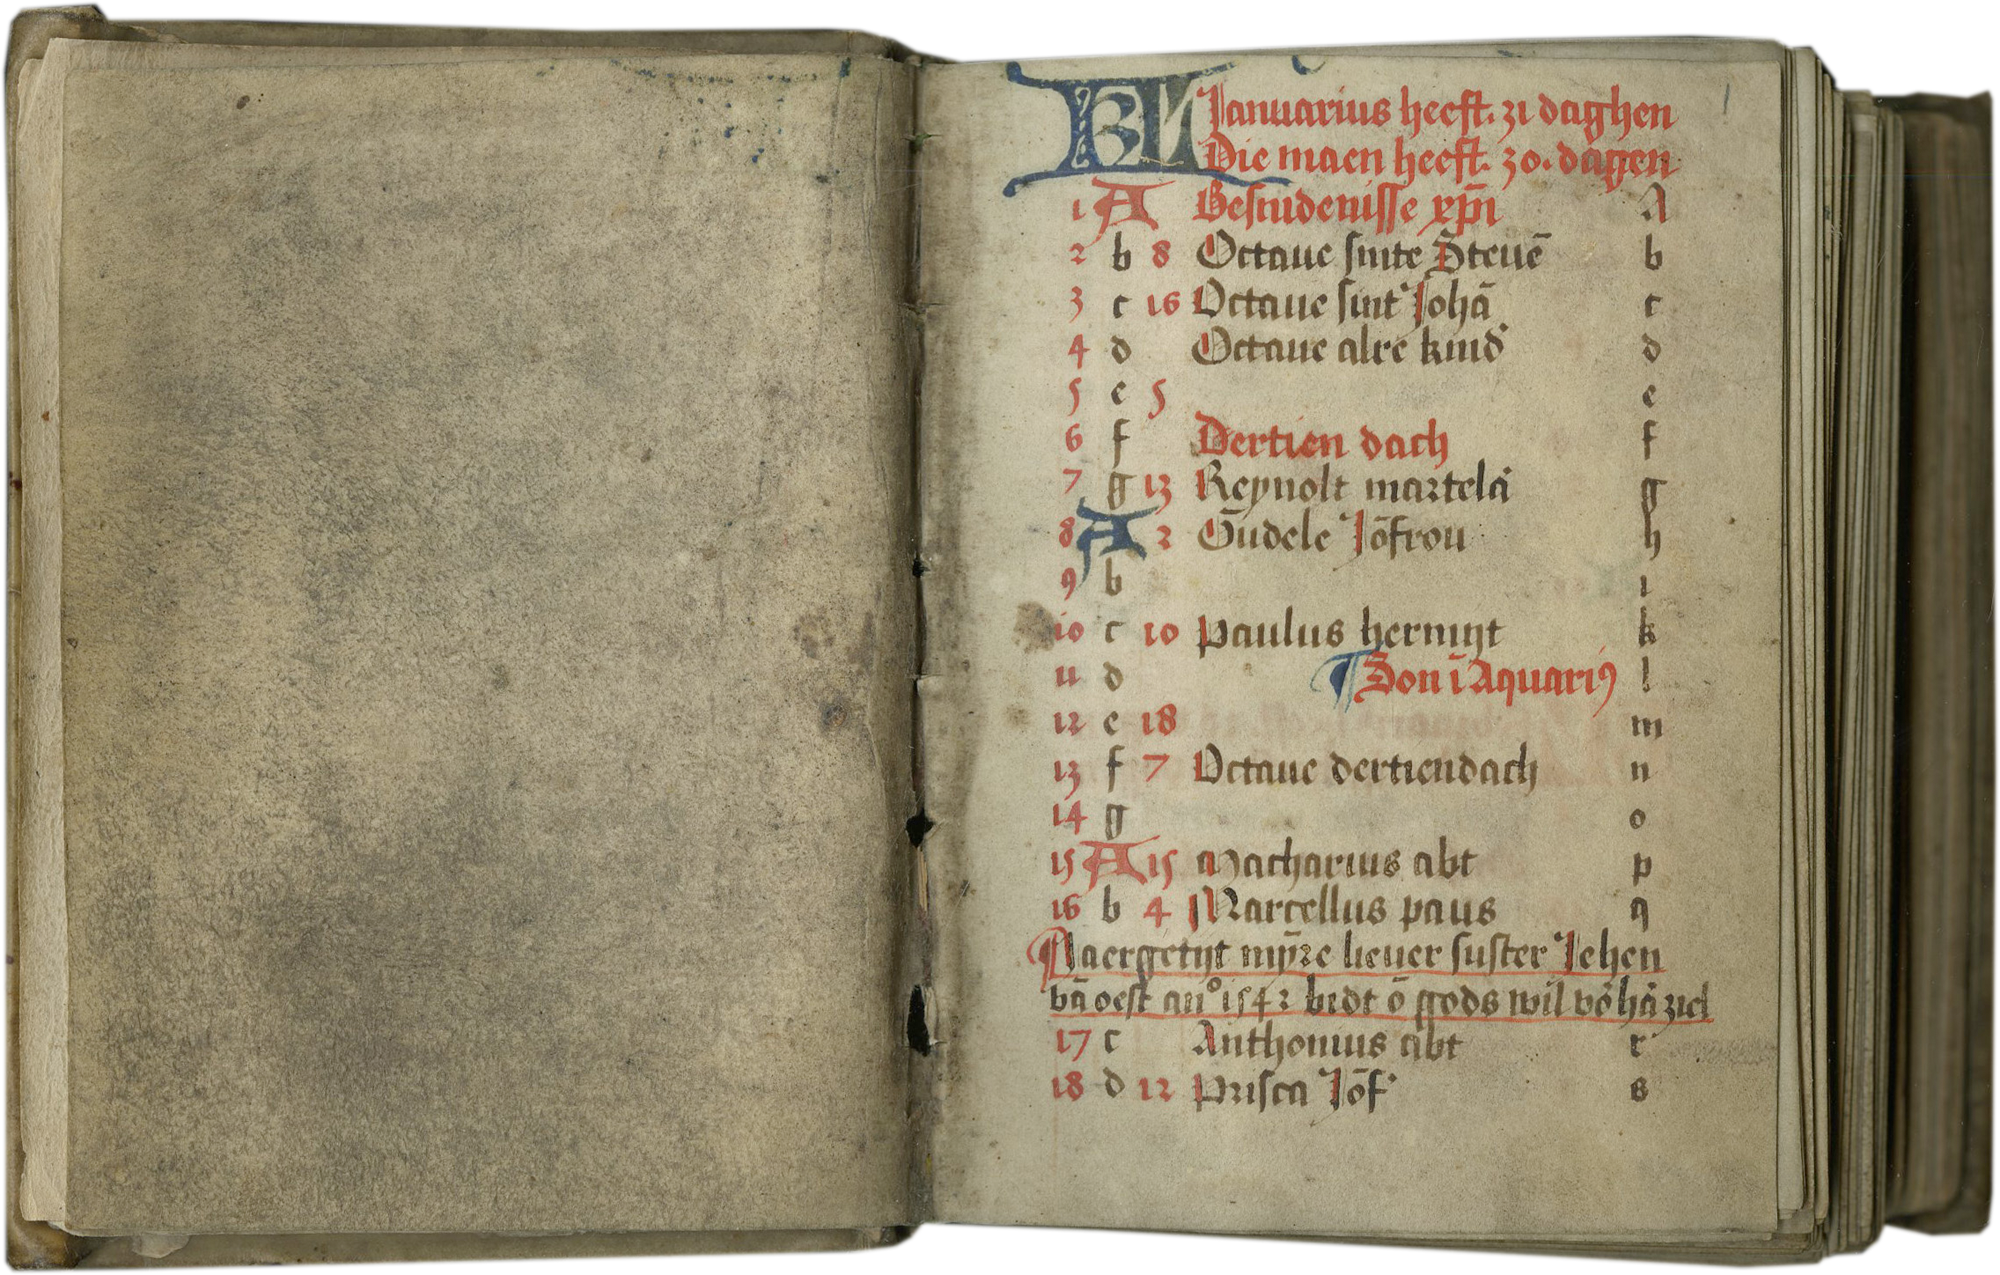 KL Januarius heeft. 31 daghen
Die maen heeft. 30. dagen
1 A Besnidenisse xp̄i A
2 b 8 Octaue sinte Steuē b
3 c 16 Octaue sint Johā c
4 d Octaue alre kind' d
5 e 5 e
6 f Dertien dach f
7 g 13 Reynolt martelā g
8 A 2 Gudele Jōfrou h
9 b i
10 c 10 Paulus hermijt k
11 d Son ī Aquari9 l
12 e 18 m
13 f 7 Octaue dertiendach n
14 g o
15 A 15 Macharius abt p
16 b 4 Marcellus paus q
Naergetijt mȳre lieuer suster Jehen
vā oest ano 1542 bidt ō gods wil vō hā ziel
17 c Anthonius abt r
18 d 12 Prisca Jōf' s